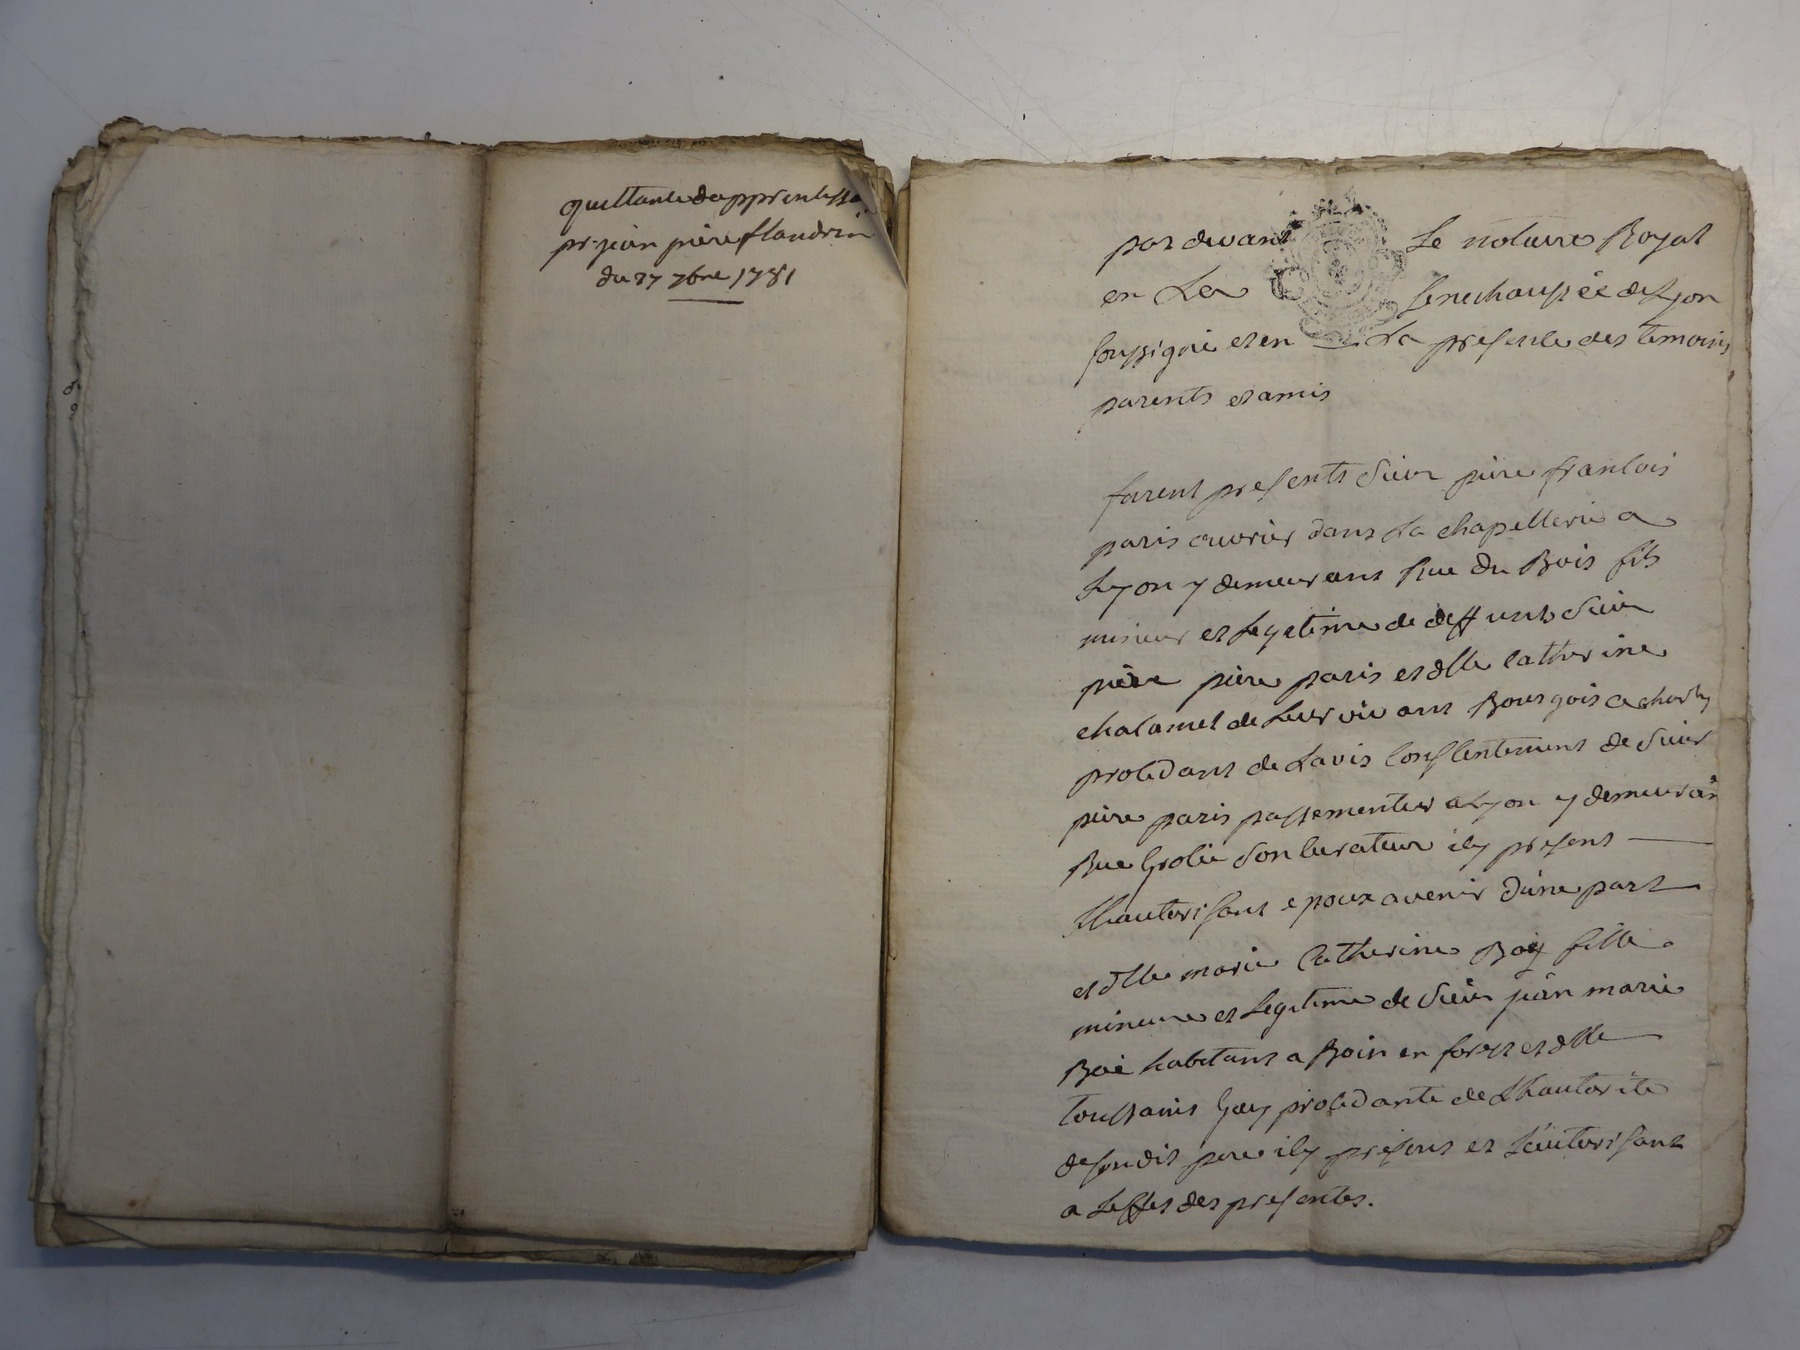 quittance dapprentissa
pr. jean pierre flandrin
du 27 7bre 1781
par devant Le notaire Royal
en La senechaussée de Lyon
soussigné et en La presence des temoins
parents et amis
furent presents Sieur pierre francois
paris ouvrier dans La chapellerie a
Lyon y demeurant Rue du Bois fils
mineur et Legitime de deffunts Sieur
pierre paris et dlle catherine
chalamel de Leur vivant Bourgois a charly
procedant de Lavis consentement de Sieur
pierre paris passementier a Lyon y demeurant
Rue Grolée son curateur icy present
Lhautorisant epoux avenir dune part
et dlle marie Catherine Boy fille
mineure et Legitime de Sieur jean marie
Boé habitant a Boin en forest et dlle
toussaint Guy procedante de Lhautorite
de sondit pere icy present et Lautorisant
a Leffet des presentes.